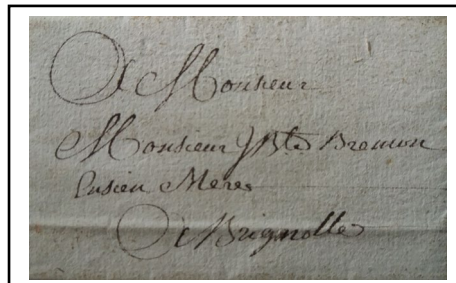 A Monsieur
Monsieur J Bte Bremon
Ensien Mere
A Brignolle